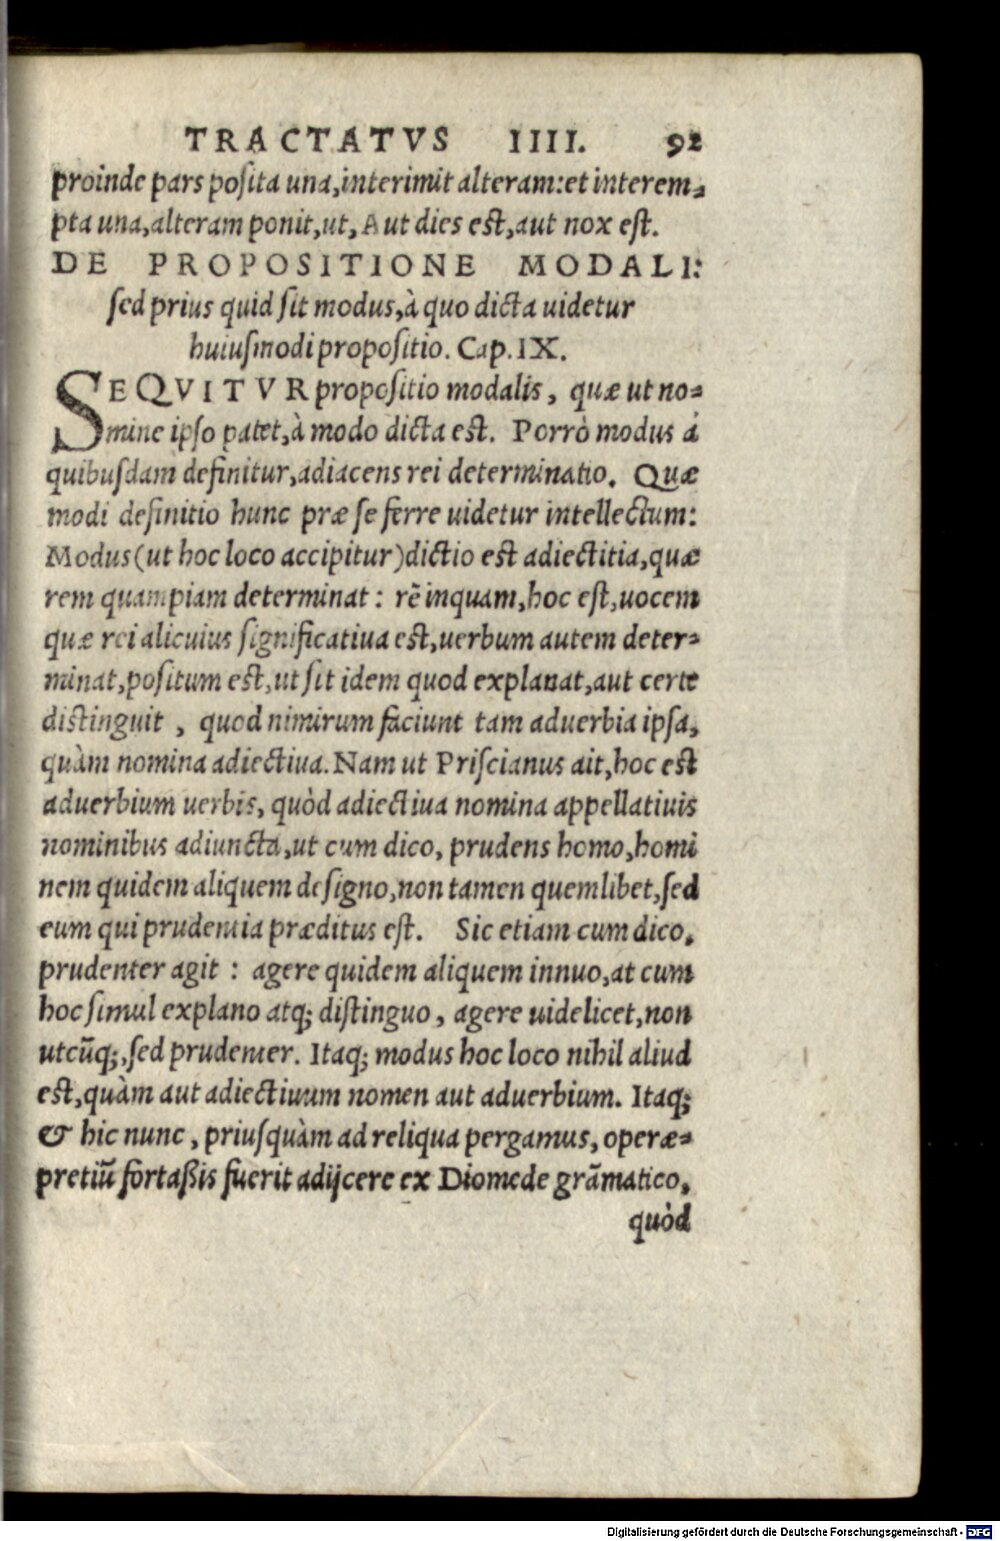 TRACTATVS IIII. 92
proinde pars posita una, interimit alteram: et interem-
pta una, alteram ponit, ut, Aut dies est, aut nox est.
DE PROPOSITIONE MODALI:
sed prius quid sit modus, à quo dicta uidetur
huiusmodi propositio. Cap. IX.
SEQVITVR propositio modalis, quæ ut no-
mine ipso patet, à modo dicta est. Porrò modus à
quibusdam definitur, adiacens rei determinatio. Quæ
modi definitio hunc præ se ferre uidetur intellectum:
Modus (ut hoc loco accipitur) dictio est adiectitia, quæ
rem quampiam determinat: rẽ inquam, hoc est, uocem
quæ rei alicuius significatiua est, uerbum autem deter-
minat, positum est, ut sit idem quod explanat, aut certe
distinguit, quod nimirum faciunt tam aduerbia ipsa,
quàm nomina adiectiua. Nam ut Priscianus ait, hoc est
aduerbium uerbis, quòd adiectiua nomina appellatiuis
nominibus adiuncta, ut cum dico, prudens homo, homi
nem quidem aliquem designo, non tamen quemlibet, sed
eum qui prudentia præditus est. Sic etiam cum dico,
prudenter agit: agere quidem aliquem innuo, at cum
hoc simul explano atq; distinguo, agere uidelicet, non
utcũq;, sed prudenter. Itaq; modus hoc loco nihil aliud
est, quàm aut adiectiuum nomen aut aduerbium. Itaq;
& hic nunc, priusquàm ad reliqua pergamus, operæ-
pretiũ fortaßis fuerit adijcere ex Diomede grãmatico,
quòd
Digitalisierung gefördert durch die Deutsche Forschungsgemeinschaft - DFG